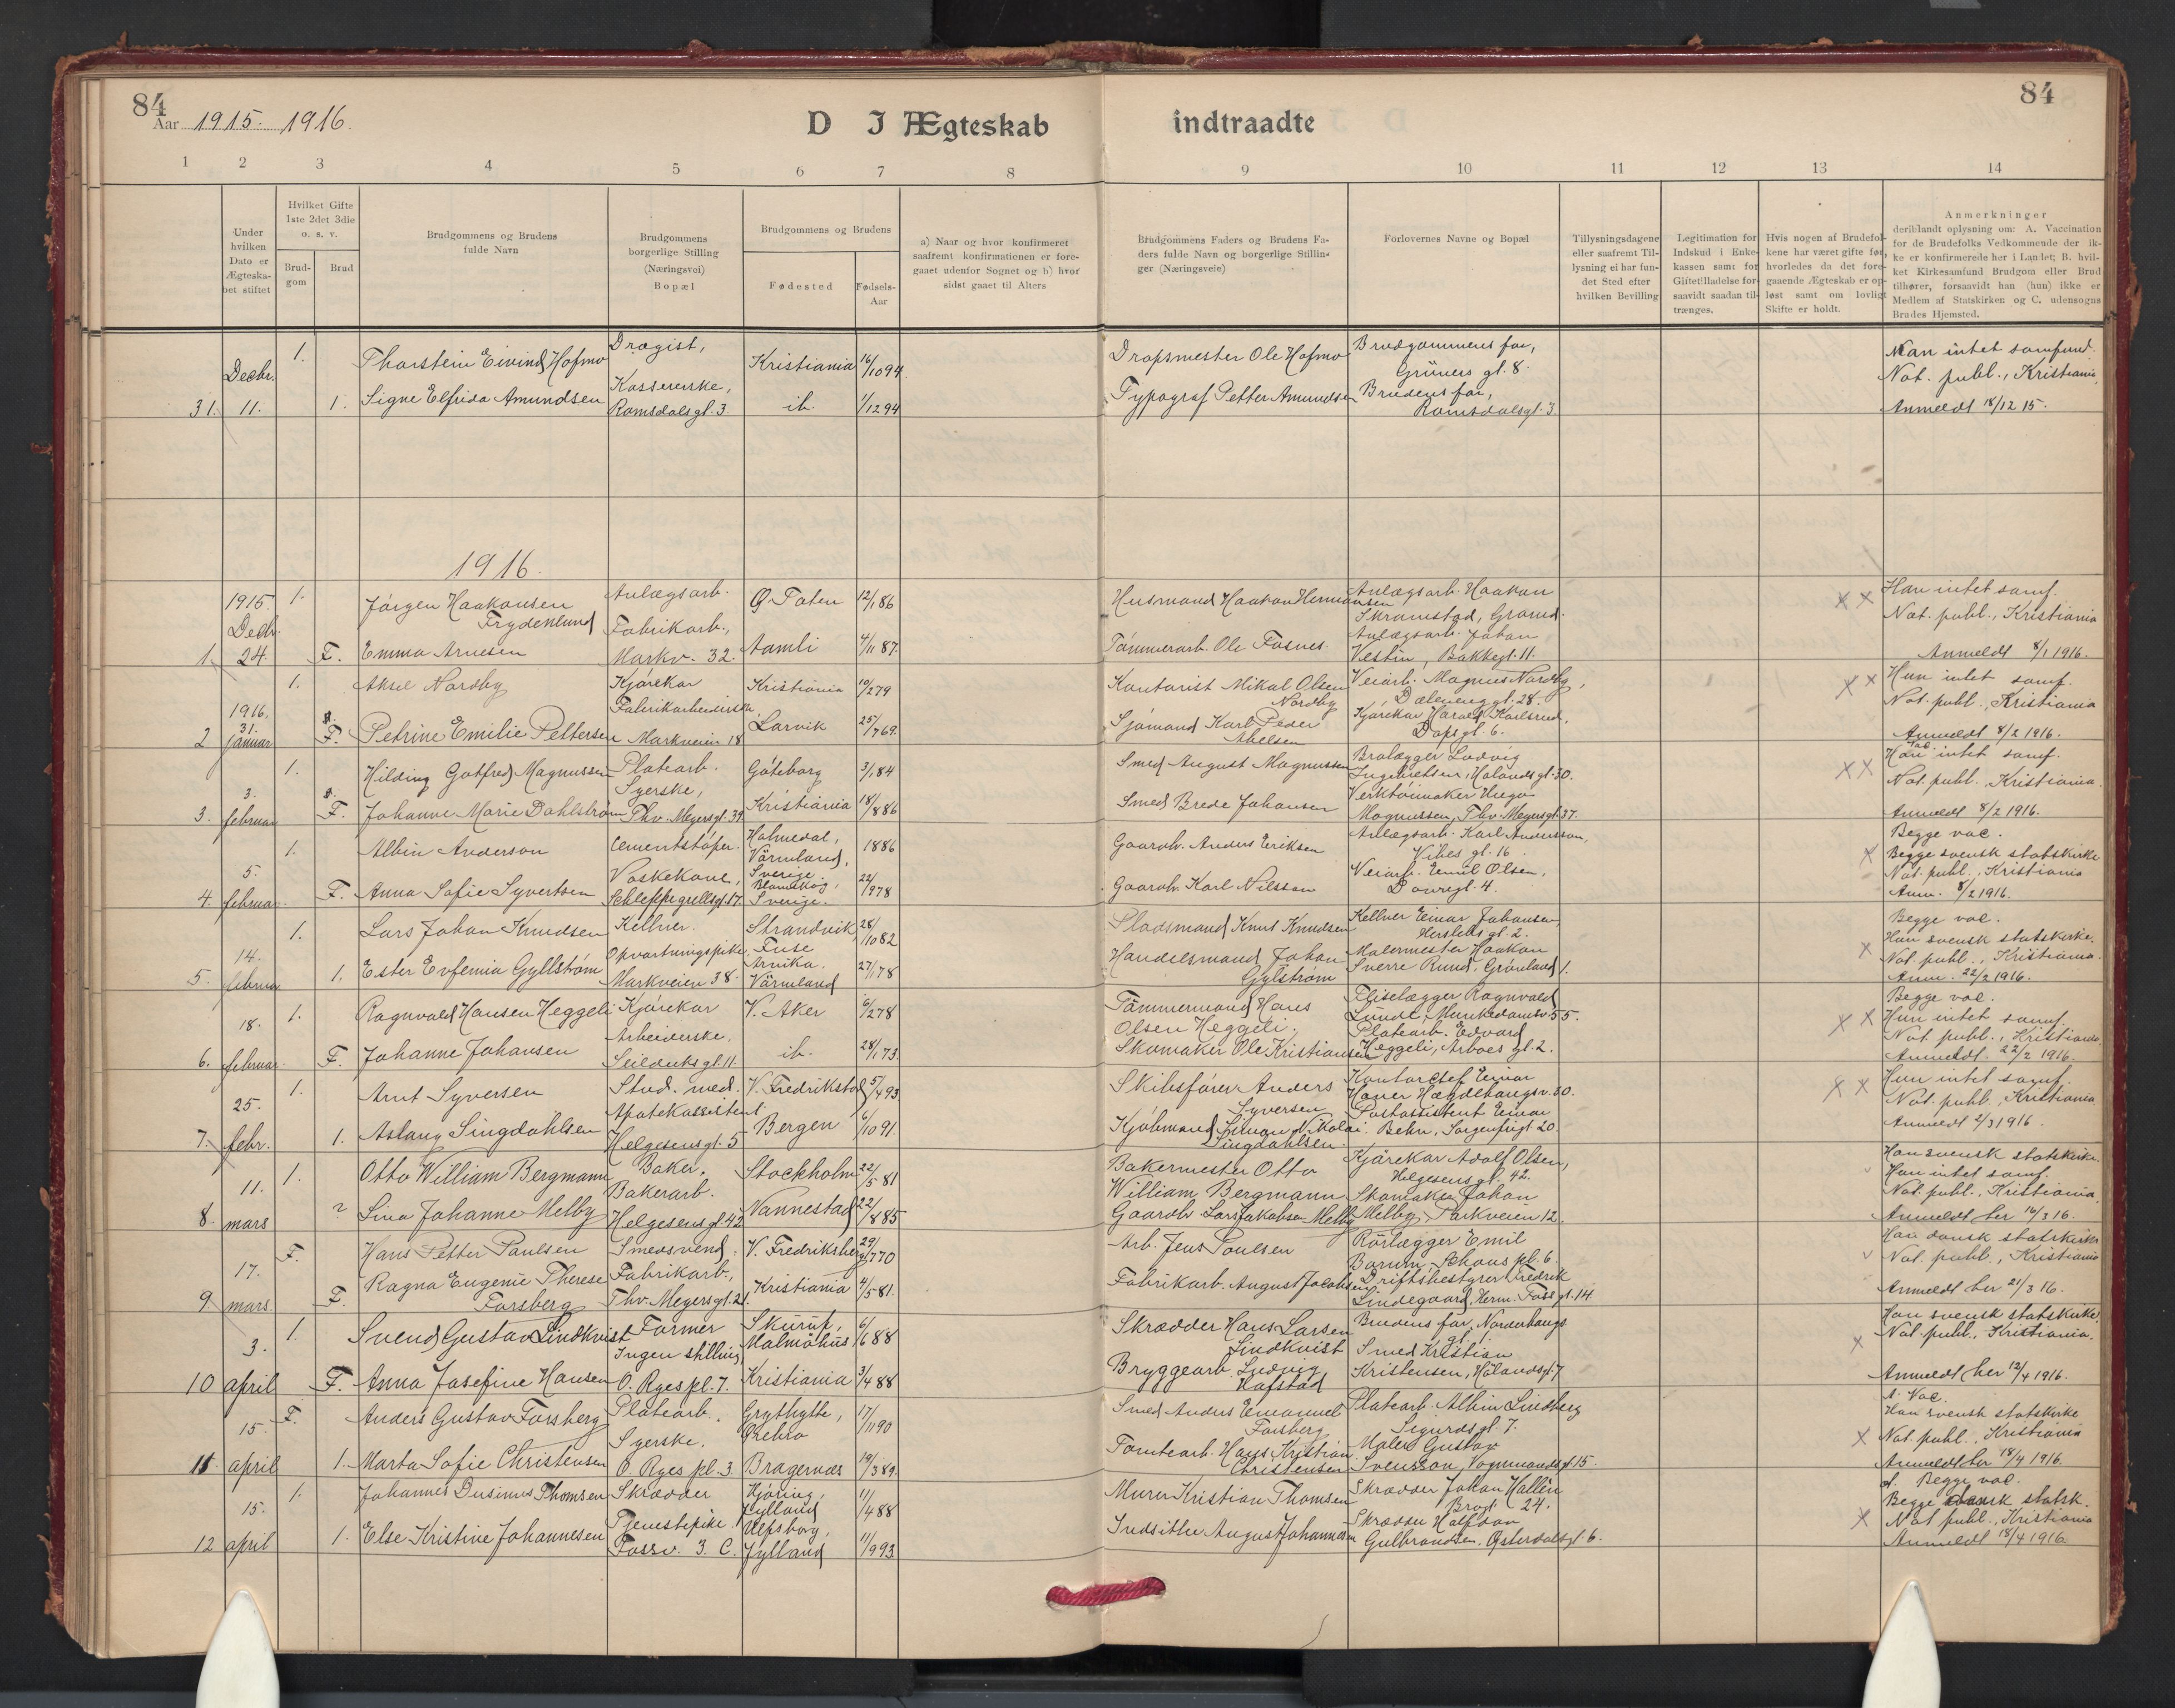 84
Aar 1915. 1916.
D I Ægteskab indtraadte
84
1 2 3 4 5 6 7 8 9 10 11 12 13 14
Under hvilken Dato er Ægteska-bet stiftet
Hvilket Gifte 1ste 2det 3die o. s. v.
Brud-gom
Brud
Brudgommens og Brudens fulde Navn
Brudgommens borgerlige Stilling (Næringsvei) Bopæl
Brudgommens og Brudens
Fødested
Fødsels-Aar
a) Naar og hvor konfirmeret saafremt konfirmationen er fore-gaaet udenfor Sognet og b) hvor sidst gaaet til Alters
Brudgommens Faders og Brudens Fa-ders fulde Navn og borgerlige Stillin-ger (Næringsveie)
Forlovernes Navne og Bopæl
Tillysningsdagene eller saafremt Til-lysning ei har fun-det Sted efter hvilken Bevilling
Legitimation for Indskud i Enke-kassen samt for Giftetilladelse for-saavidt saadan til-trænges.
Hvis nogen af Brudefol-kene har været gifte før, hvorledes da det fore-gaaende Ægteskab er op-løst samt om lovligt Skifte er holdt.
Anmerkninger
deriblandt oplysning om: A. Vaccination for de Brudefolks Vedkommende der ik-ke er konfirmerede her i Landet; B. hvil-ket Kirkesamfund Brudgom eller Brud tilhører, forsaavidt han (hun) ikke er Medlem af Statskirken og C. udensogns Brudes Hjemsted.
31. Decbr. 11. 1. Thorstein Eivind Hofmo Drogist, Kristiania 16/10 94 Dropsmester Ole Hofmo Brudgommens far, Grüners gt. 8. Han intet samfund. Not. publ., Kristiania,
1. Signe Elfrida Amundsen Kassererske, Romsdalsgt. 3. ib. 1/12 94 Typograf Petter Amundsen Brudens far, Romsdalsgt. 3. Anmeldt 18/12 15.
1916.
1. 1915. Decbr. 24. 1. Jørgen Haakonsen Frydenlund Anlægsarb. Ø. Toten 12/1 86 Husmand Haakon Hermansen Anlægsarb. Haakon Skramstad, Grønd. X X Han intet samf. Not. publ., Kristiania
F. Emma Arnesen Fabrikarb., Markv. 32. Aamli 4/11 87. Tømmerarb. Ole Fosnes Anlægsarb. Johan Vestin, Bakkegt. 11. Anmeldt 8/1 1916.
2 1916, 31. januar 1. Aksel Nordby Kjørekar Kristiania 10/2 79 Kontorist Mikal Olsen Nordby Veiarb. Magnus Nordby, Dælenenggt. 28. X X Hun intet samf. Not. publ., Kristiania
F. Petrine Emilie Pettersen Fabrikarbeiderske, Markveien 18 Larvik 25/7 69. Sjømand Karl Peder Abelsen Kjørekar Harald Karlsrud, Dopsgt. 6. Anmeldt 8/2 1916.
3. 3. februar 1. Hilding Gotfred Magnussen Platearb. Göteborg 3/1 84 Smed August Magnussen Brolægger Ludvig Ingebretsen, Hølandsgt. 30. X X Han intet samf. Not. publ., Kristiania.
F. Johanne Marie Dahlstrøm Syerske, Thv. Meyersgt. 39. Kristiania 18/8 86 Smed Brede Johansen Verktøimaker Hugo Magnussen, Thv. Meyersgt. 37. Anmeldt 8/2 1916.
4. 5. februar 1. Albin Anderson Cementstøper. Holmedal, Värmland, Sverige. 1886 Gaardbr. Anders Eriksen Anlægsarb. Karl Andersson, Vibes gt. 16 X Begge vac. Begge svensk statskirke Not. publ., Kristiania
F. Anna Sofie Syvertsen Vaskekone, Schleppegrellsgt. 17. Sverige. 22/9 78 Gaardbr. Karl Nilsson Veiarb. Emil Olsen, Dovregt. 4. Anm. 8/2 1916.
5. 14. februar 1. Lars Johan Knudsen Kellner. Strandvik, Fuse 28/10 82 Pladsmand Knut Knudsen Kellner Einar Johansen, Herslebs gt. 2. X Begge vac. Hun svensk statskirke. Not. publ., Kristiania.
1. Ester Evfemia Gyllstrøm Opvartningspike, Markveien 38. Arvika. Värmland 27/1 78 Handelsmand Johan Gylstrøm Malermester Haakon Sverre Rund, Grønland 1. Anm. 22/2 1916.
6. 18. februar 1. Ragnvald Hansen Heggeli Kjørekar V. Aker 6/2 78 Tømmermand Hans Olsen Heggeli. Fliselægger Ragnvald Lunde, Munkedamsv. 55. X X Begge vac. Hun intet samf. Not. publ., Kristiania
F. Johanne Johansen Arbeiderske, Seilduksgt. 11. ib. 28/1 73. Skomaker Ole Kristiansen Platearb. Edvard Heggeli, Arboes gt. 2. Anmeldt. 22/2 1916.
7. 25. febr. 1. Arnt Syversen Stud. med. V. Fredrikstad 5/4 93 Skibsfører Anders Syversen Kontorchef Einar Høyer Hægdehaugsv. 30. X X Hun intet samf. Not. publ., Kristiania
1. Aslaug Singdahlsen Apotekassistent Helgesensgt. 5 Bergen 6/10 91. Kjøbmand Simon Nikolai Singdahlsen. Postassistent Einar Behn, Sorgenfrigt. 20. Anmeldt 2/3 1916.
8. 11. mars 1. Otto William Bergmann Baker. Stockholm 22/5 81 Bakermester Otto William Bergmann Kjørekar Adolf Olsen, Helgesens gt. 42. Han svensk statskirke. Hun intet samf. Not. publ., Kristiania,
? Lina Johanne Melby Bakerarb. Helgesensgt. 42 Vannestad 22/8 85 Gaardbr. Lars Jakobsen Melby Skomaker Johan Melby, Parkveien 12. Anmeldt her 16/3 16.
9. 17. mars F. Hans Petter Paulsen Smedsvend. V. Fredriksberg 29/7 70 Arb. Jens Poulsen Rørlægger Emil Borum, Schous pl. 6. Han dansk statskirke Not. publ., Kristiania
F. Ragna Eugenie Therese Forsberg Fabrikarb., Thv. Meyersgt. 21. Kristiania 4/5 81. Fabrikarb. August Jacobsen Driftsbestyrer Fredrik Lindegaard, Herm. Foss gt. 14. Anmeldt her 21/3 16.
10 3. april 1. Svend Gustav Lindkvist Former Skurup, Malmöhus 6/6 88 Skrædder Hans Larsen Lindkvist Brudens far, Norderhougs gt. X Han svensk statskirke. Not. publ., Kristiania.
F. Anna Josefine Hansen Ingen stilling, O. Ryes pl. 7. Kristiania 3/4 88 Bryggearb. Ludvig Hafstad Smed Kristian Kristensen, Hølandsgt. 7 Anmeldt her 12/4 1916.
11. 15. april F. Anders Gustav Forsberg Platearb. Grythytte, Örebro 17/11 90 Smed Anders Emanuel Forsberg Platearb. Albin Lindberg Sigurdsgt. 7. X A. Vac. Han svensk statskirke Not. publ., Kristiania
1. Marta Sofie Christensen Syerske. O. Ryes pl. 3. Bragernæs 19/3 89. Tomtearb. Hans Kristian Christensen Maler Gustav Svensson, Vognmandsgt. 15. Anmeldt her 18/4 1916.
12 15. april 1. Johannes Dusinus Thomsen Skrædder Hjøring, Jylland 11/4 88 Murer Kristian Thomsen Skrædder Johan Hallén 24. X A. Begge vac. Begge dansk statsk. Not. publ., Kristiania
1. Else Kristine Johannesen Tjenestepike. Fossv. 3. C. Ulfsborg, Jylland 11/9 93. Indsidder August Johannesen Skrædder Halfdan Gulbrandsen, Østerdalsgt. 6. Anmeldt 18/4 1916